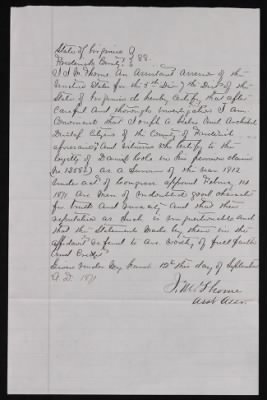 State of Virginia
County } SS.
I J. M. Thorne An Assistant Assessor of the
United States for the 5th Div 7th Dist of the
State of Virginia do hereby certify that after
careful and thorough investigation I am
Convinced that Joseph
Citizens of the County of
aforesaid And witnesses who testify to the
loyalty of Daniel Cole in his pension claim
as a Survivor of the war 1812
under act of Congress approved February 14
1871 Are Men of undoubted good character
for truth And veracity and that their
reputation as Such is unquestionable and
that the Statements Made by them in the
affidavit referred to Are worthy of full faith
And Credit
Given under My hand 12th this day of September
A.D. 1871
J. M. Thorne
Asst Assr.